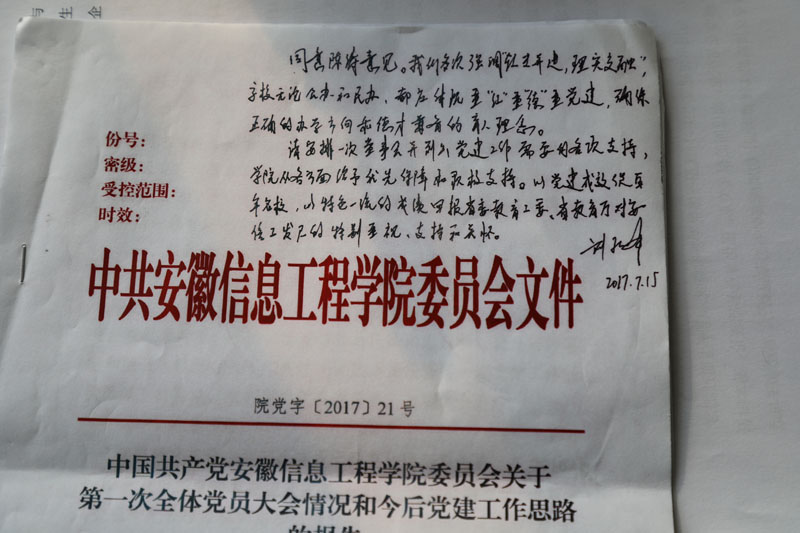 与
生
企
同意陈涛意见。我们多次强调"红专并进，理实交融"，
学校无论公办和民办，都应传统重"红"重"德"重党建，确保
正确的办学方向和德才兼备的育人理念。
份号：
请安排一次董事会开列出党建工作需要的各项支持，
密级：
学院从各方面给予优先保障和积极支持。以党建成效促百
受控范围：
年名校，以特色一流的成绩回报省委教育工委、省教育厅对安
时效：
信工发展的特别重视、支持和关怀。
2017.7.15
中共安徽信息工程学院委员会文件
院党字〔2017〕21号
中国共产党安徽信息工程学院委员会关于
第一次全体党员大会情况和今后党建工作思路
的报告